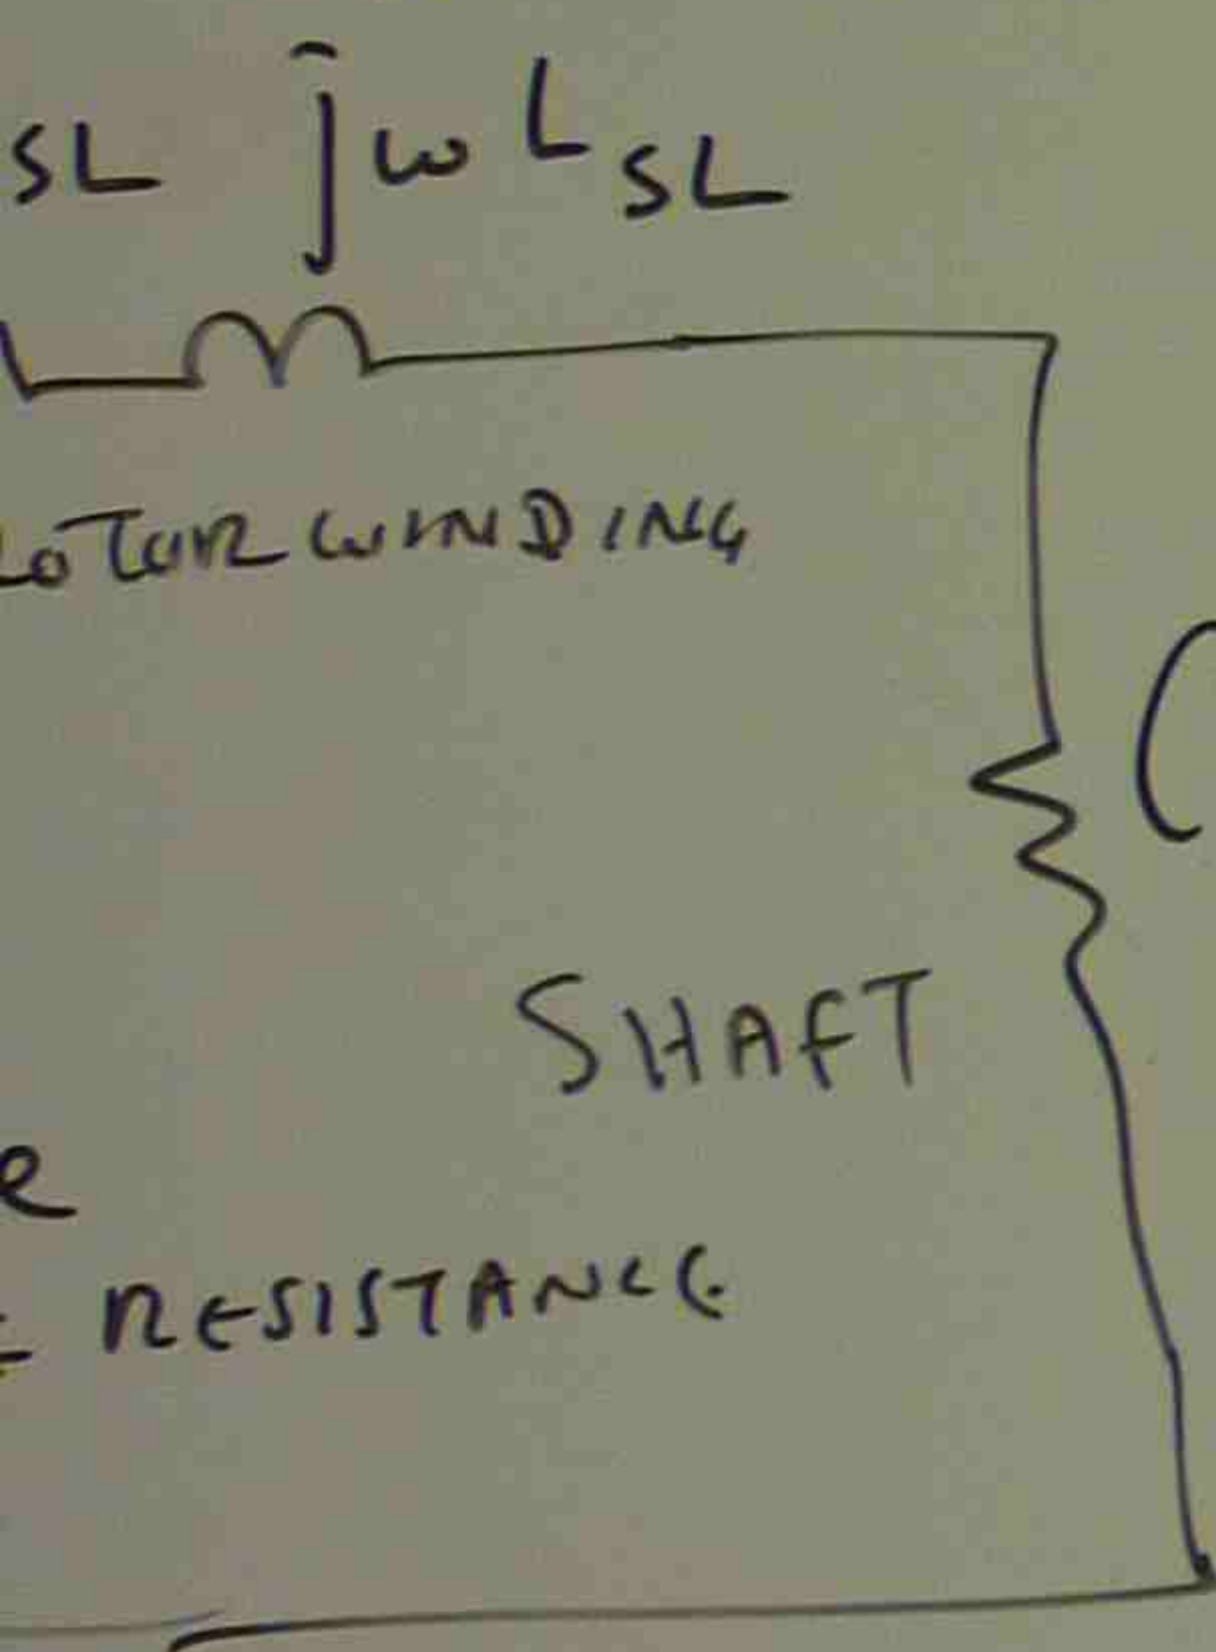 SL jωL SL
ROTOR WINDING
(
SHAFT
e
RESISTANCE